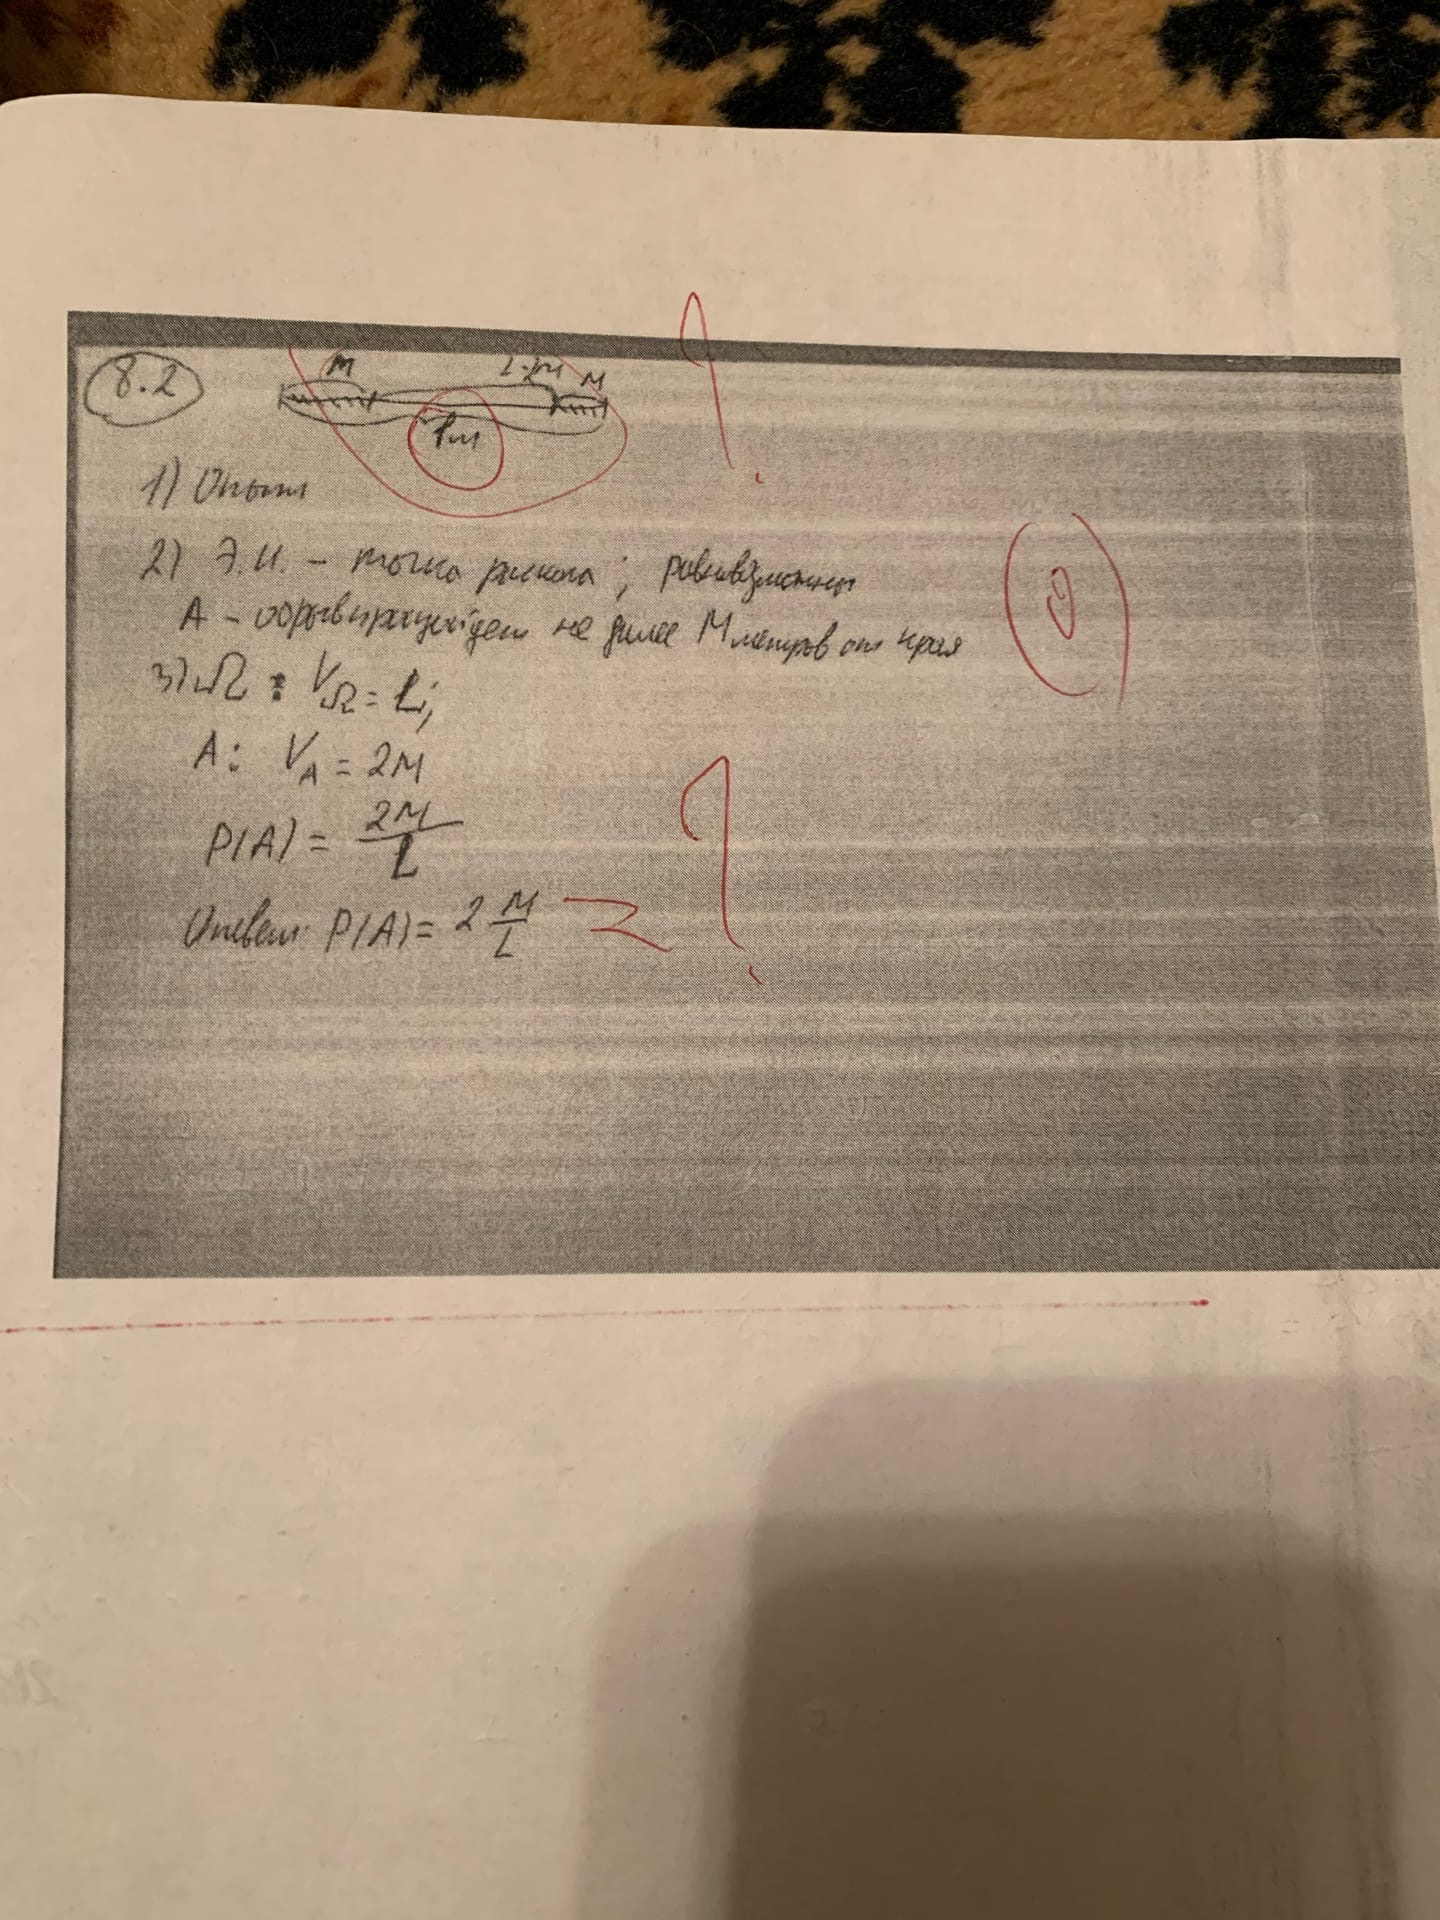 8.2
M L-2M M
Lм
1) Опыт
2) Э.И. - точка раскола; равновозможны
A - обрыв произойдет не далее M метров от края
3) Ω: V_Ω = L;
A: V_A = 2M
P(A) = 2M/L
Ответ: P(A) = 2 M/L = ?
0